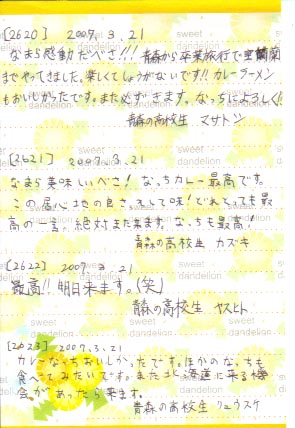 [2620] 2007. 3. 21
なまら感動だべさ!!! 青森から卒業旅行で室蘭
までやってきました。楽しくてしょうがないです!! カレーラーメン
もおいしかったです。また必ずきます。なっちによろしく!!
青森の高校生 マサトシ
[2621] 2007. 3. 21
なまら美味しいべさ! なっちカレー最高です。
この居心地の良さ、そして味! どれとっても最
高の一言。絶対また来ます。なっちも最高!
青森の高校生 カズキ
[2622] 2007. 3. 21
最高!! 明日来ます。(笑)
青森の高校生 ヤスヒト
[2623] 2007. 3. 21
カレーなっちおいしかったです。ほかのなっちも
食べてみたいです。また北海道に来る機
会があったら来ます。
青森の高校生 リュウスケ
sweet
dandelion